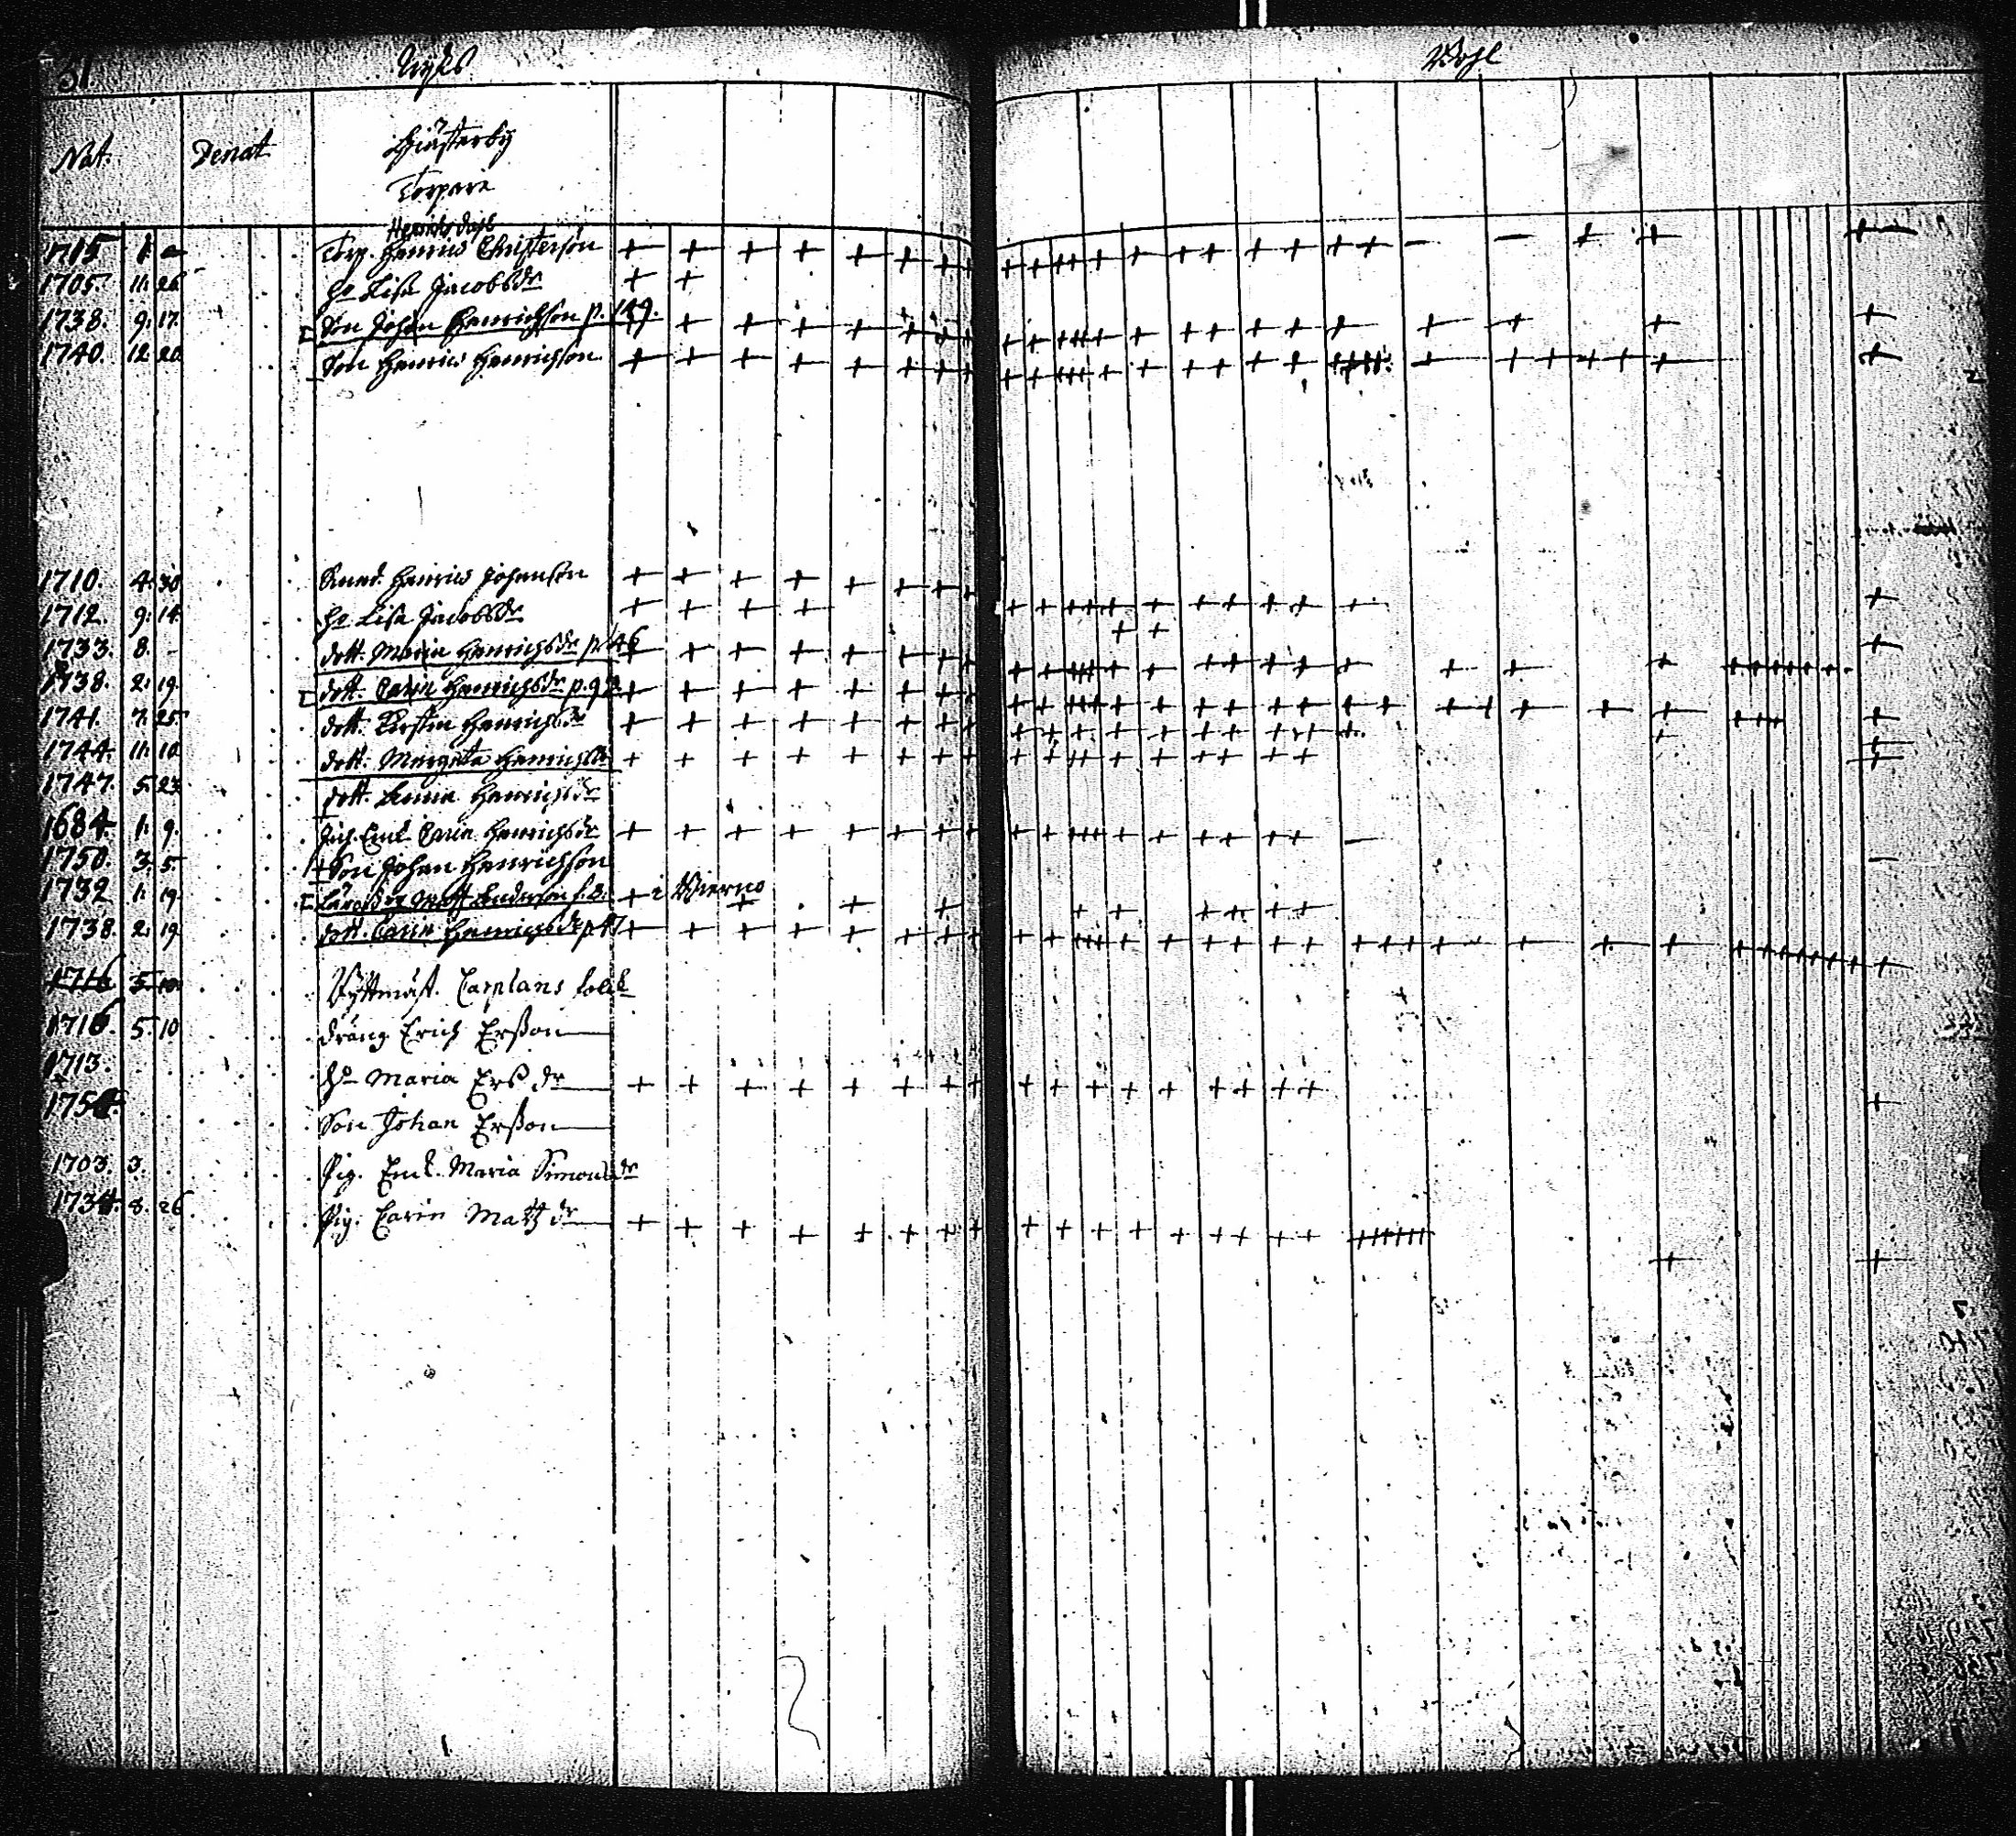 31
Nyby
Wohl
Nat. Denat
Giästerby
Torpare
Henrichsdahl
1715 1. Torp. Henric Christerson
1705. 11. 26 h:o Lisa Jacobsdr
1738. 9. 17. Son Johan Henrichson p. 149.
1740. 12 20 Son Henric Henrichson
1710. 4. 30 Henric Johanson
1712. 9. 14. h:o Lisa Jacobsdr
1733. 8. dott. Maria Henrichsdr p. 46
1738. 2. 19. dott. Carin Henrichsdr p. 92
1741. 7. 25 dott. Kirstin Henrichsdr
1744. 11. 10 dott. Margeta Henrichsdr
1747. 5. 23 dott. Anna Henrichsdr
1684. 1. 9. Enk. Carin Henrichsdr
1750. 3. 5. Son Johan Henrichson
1732 1. 19. Matt Anderson i Bierno
1738. 2. 19. dott. Carin Henrichsdr p. 47
1716 5. 10. Ryttmäst. Carplans folck
1716. 5. 10 dräng Erich Erßon
1713. h:o Maria Ers dr
Son Johan Erßon
1703. 3. Pig. Enk. Maria Simonsdr
1734. 8. 26. Pig. Carin Matzdr